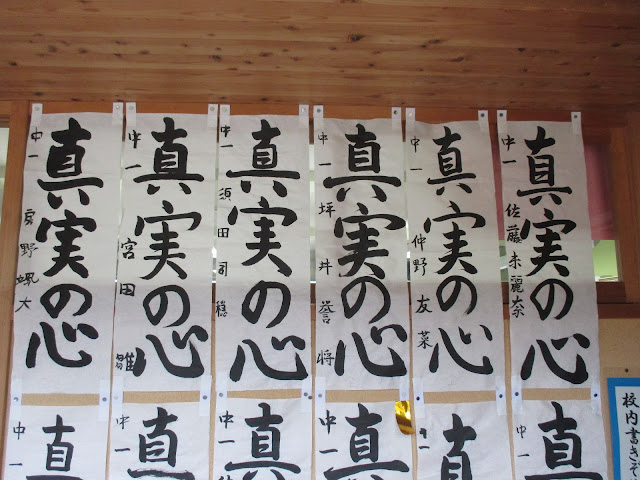 校内書きぞ
真実の心
中一 佐藤未麗奈
真実の心
中一 仲野友菜
真実の心
中一 坪井誉将
真実の心
中一 須田司穂
真実の心
中一 宮田雛
真実の心
中一 野颯大
真
中一
真
真
中一
真
中一
真
中一
真
中一